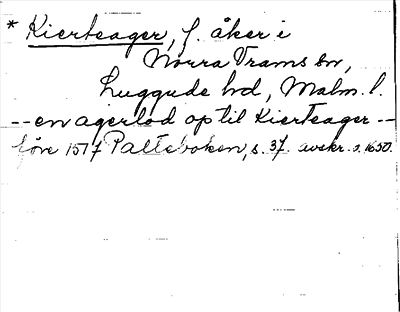 * Kierteager, f. åker i
Norra Vrams sn,
Luggude hd, Malm. l.
--en agerlod op til Kierteager--
före 1517 Palteboken, s. 37. avskr. o. 1650.